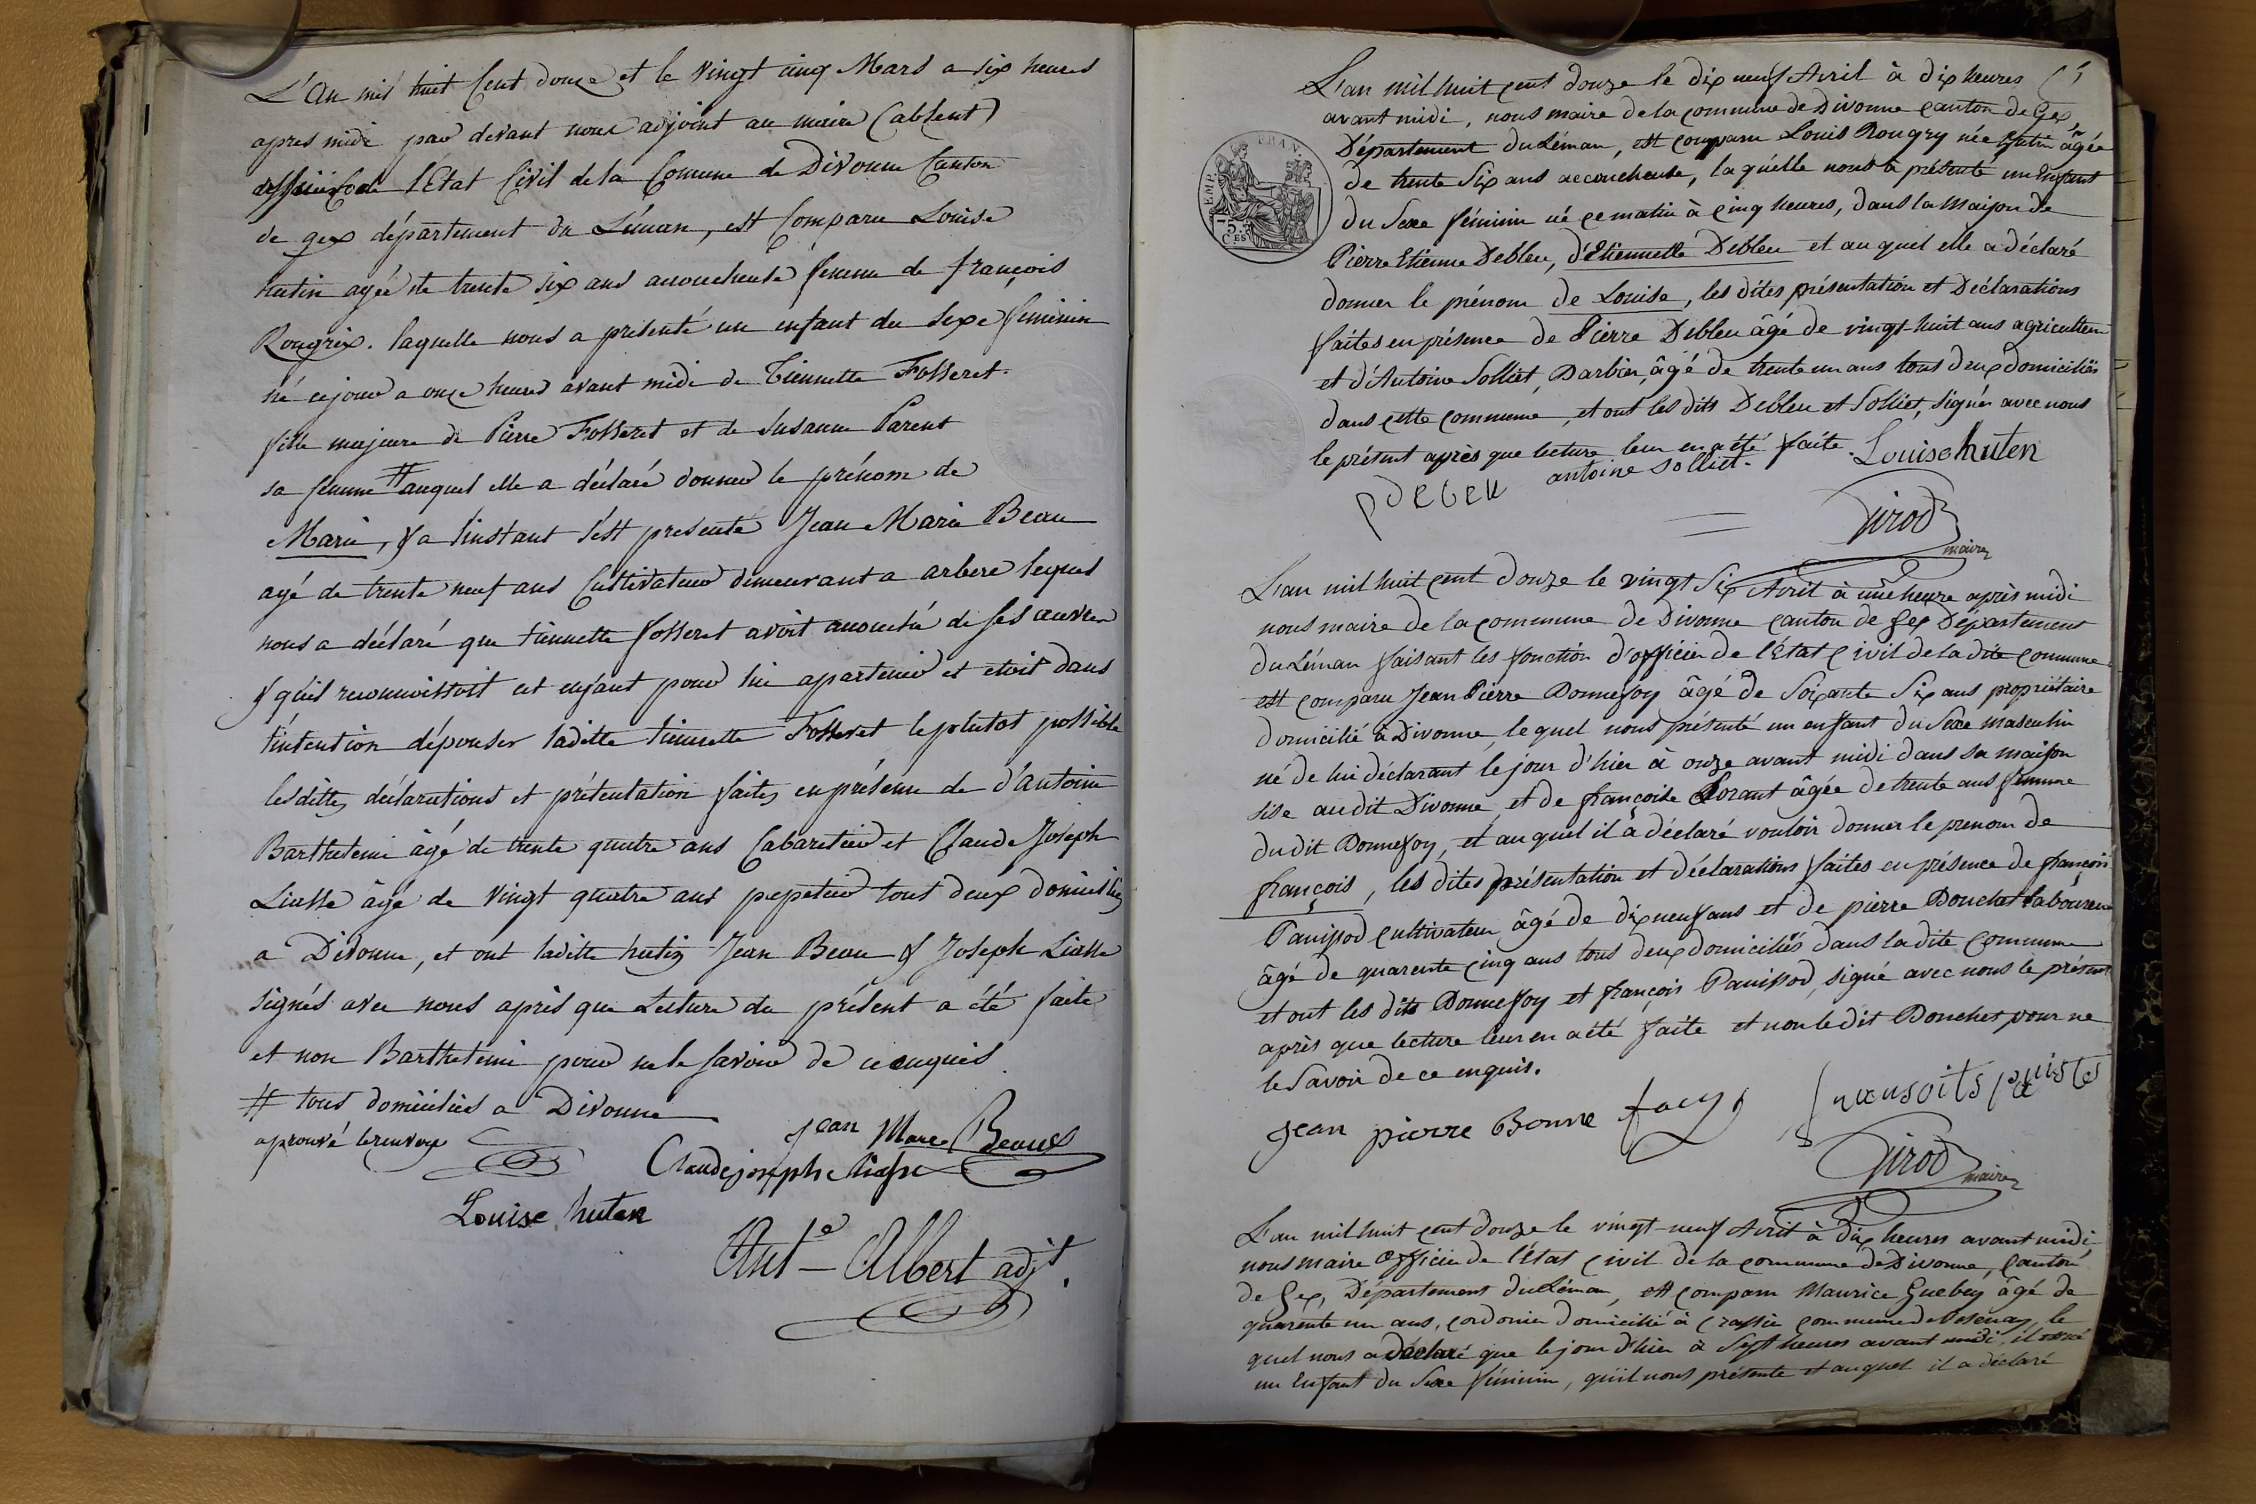 L'An mil huit Cent douze et le vingt cinq Mars a six heures
apres midi par devant nous adjoint au maire (absent)
officier de l'Etat Civil de la Comune de Divonne Canton
de gex département du Léman, est Comparu Louise
hutin agée de trente six ans accoucheuse femme de françois
Rougrix. laquelle nous a présenté un enfant du sexe feminin
né cejourd a onze heures avant midi de Tiennette Fosseret
fille majeure de Pierre Fosseret et de Susanne Parent
sa femme # auquel elle a déclaré donner le prénom de
Marie, & a linstant s'est presenté Jean Marie Beau
agé de trente neuf ans Cultivateur demeurant a arbere lequel
nous a déclaré que tiennette fosseret avoit accouché de ses œuvres
& qu'il reconnoissoit cet enfant pour lui apartenir et etoit dans
l'intention d'épouser laditte tiennette Fosseret le plutot possible
lesdittes déclarations et présentation faites en présence de d'antoine
Barthelemi âgé de trente quatre ans Cabaretier et Claude Joseph
Liasse âgé de vingt quatre ans papetier tout deux domiciliés
a Divonne, et ont laditte hutin Jean Beau & Joseph Liasse
signés avec nous après que Lecture du présent a été faite
et non Barthelemi pour ne le savoir de ce enquis.
# tous domiciliés a Divonne
aprouvé le renvoy
Jean Marc Beaux
Claude joseph liasse
Louise huten
Ant.e Albert adj.t
L'an mil huit cent douze le dix neuf Avril à dix heures
avant midi, nous maire de la commune de Divonne canton de Gex,
Département du Léman, est comparu Louis Rougry née hutin âgée
de trente six ans accoucheuse, laquelle nous à présenté un Enfant
du Sexe féminin né ce matin à cinq heures, dans la Maison de
Pierre Etienne Debleu, d'Etiennette Debleu et au quel elle a déclaré
donner le prénom de Louise, les dites présentation et Déclarations
faites en présence de Pierre Debleu âgé de vingt-huit ans agriculteur
et d'Antoine Solliet, Barbier, âgé de trente un ans tous deux domiciliés
dans cette commune, et ont les dits Debleu et Solliet, signés avec nous
le présent après que lecture leur en a été faite. Louise huten
antoine solliet.
p debleu
Girod
maire
L'an mil huit cent douze le vingt Six Avril à une heure après midi
nous maire de la commune de Divonne canton de Gex Département
du Léman faisant les fonction d'officier de l'État civil de la dite commune
est comparu Jean Pierre Bonnefoy âgé de Soixante Six ans propriétaire
domicilié à Divonne, le quel nous présenté un enfant du Sexe masculin
né de lui déclarant le jour d'hier à onze avant midi dans sa maison
sise au dit Divonne, et de françoise Lorant âgée de trente ans femme
du dit Bonnefoy, et au quel il à déclaré vouloir donner le prenom de
françois, les dites présentation et déclarations faites en présence de françois
Panissod cultivateur âgé de dix neuf ans et de pierre Bouchet laboureur
âgé de quarente cinq ans tous deux domiciliés dans la dite commune
et ont les dits Bonnefoy et françois Panissod, signé avec nous le présent
après que lecture leur en a été faite et non le dit Bouchet pour ne
le Savoir de ce enquis.
Jean pierre Bonne foey
Girod
maire
L'an mil huit cent douze le vingt-neuf Avril à dix heures avant midi,
nous maire Officier de l'état civil de la commune de Divonne, Canton
de Gex, Département du Léman, est comparu Maurice Guebey âgé de
quarente un ans, cordonier domicilié à Crassie commune de Vesenay, le
quel nous a déclaré que le jour d'hier à Sept heures avant midi, il est né
un Enfant du Sexe féminin, qu'il nous présente et auquel il a déclaré